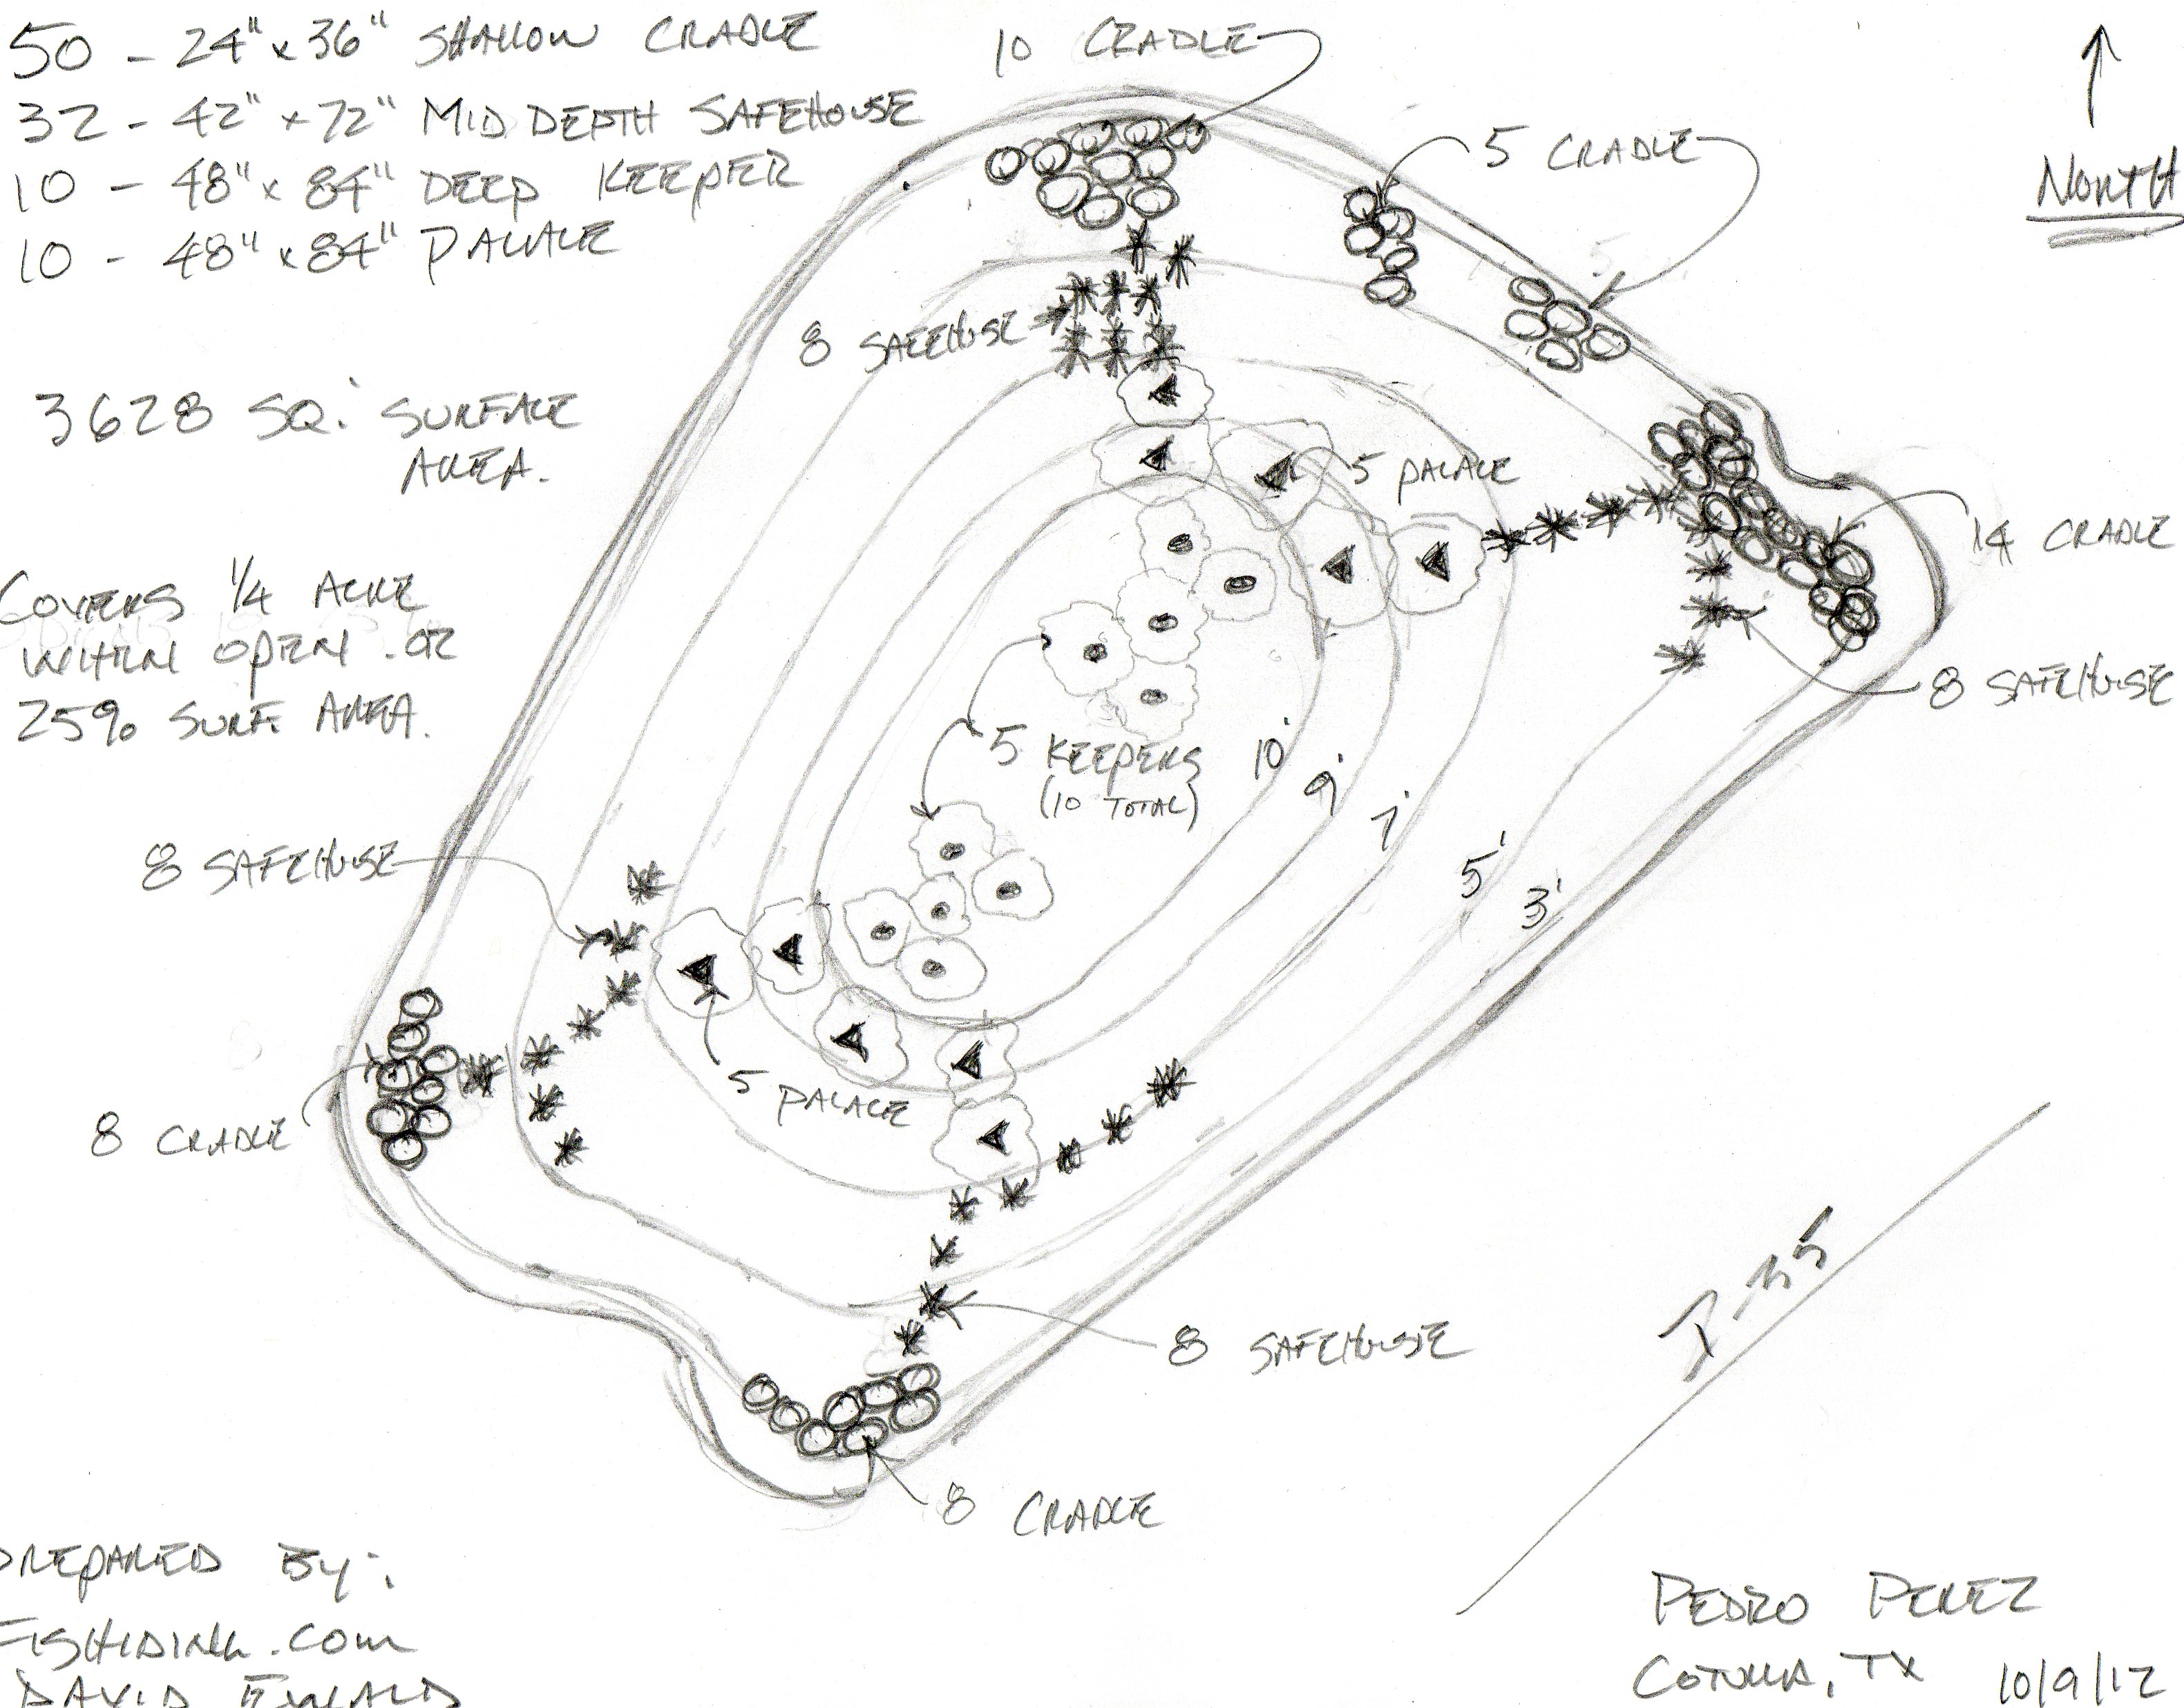 50 - 24" x 36" SHALLOW CRADLE
32 - 42" x 72" MID DEPTH SAFEHOUSE
10 - 48" x 84" DEEP KEEPER
10 - 48" x 84" PALACE
3628 SQ.' SURFACE
AREA.
COVERS 1/4 ACRE
WHEN OPEN. OR
25% SURF. AREA.
10 CRADLE
5 CRADLE
NORTH
8 SAFEHOUSE
5 PALACE
14 CRADLE
8 SAFEHOUSE
5 KEEPERS
(10 TOTAL)
10'
9'
7'
5'
3'
8 SAFEHOUSE
5 PALACE
8 CRADLE
8 SAFEHOUSE
8 CRADLE
I-35
PREPARED BY:
FISHIDING.COM
DAVID EWALD
PEDRO PEREZ
COTULLA, TX 10/9/12